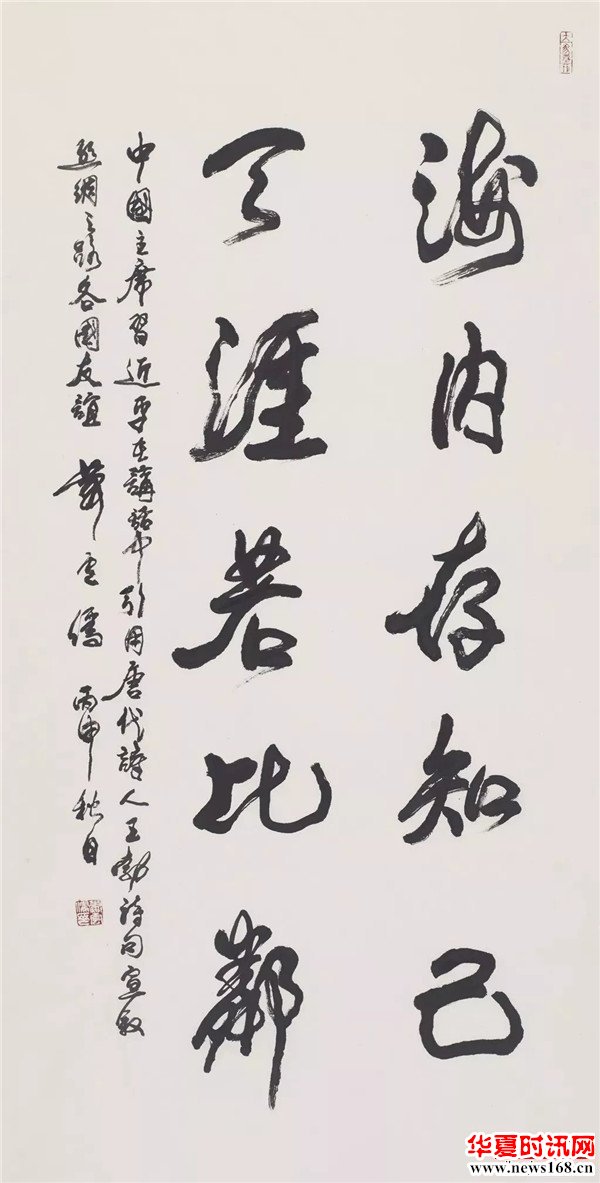 海内存知己
天涯若比鄰
中國主席習近平在講話中引用唐代詩人王勃詩句宣敘
絲綢之路各國友誼 丙申秋月
华夏时讯网
www.news168.cn